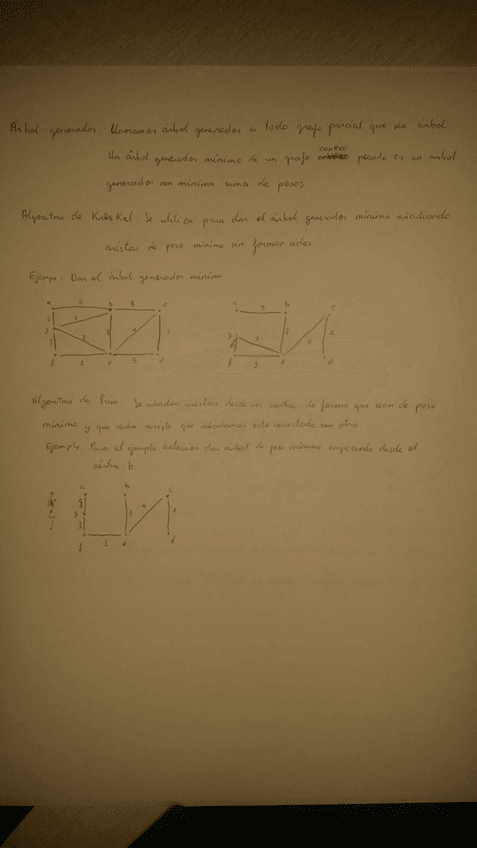 Árbol generador: Llamamos árbol generador a todo grafo parcial que sea árbol.
Un árbol generador mínimo de un grafo conexo pesado es un árbol
generador con mínima suma de pesos
Algoritmo de Kruskal: Se utiliza para dar el árbol generador mínimo añadiendo
aristas de peso mínimo sin formar ciclos
Ejemplo: Dar el árbol generador mínimo
a b c
d
a b c
1 d
Algoritmo de Prim: Se añaden aristas desde un vértice de forma que sean de peso
mínimo y que cada arista que añadamos este conectada con otra
Ejemplo: Para el ejemplo anterior dar árbol de peso mínimo empezando desde el
vértice b
a b c
3 3
1 d